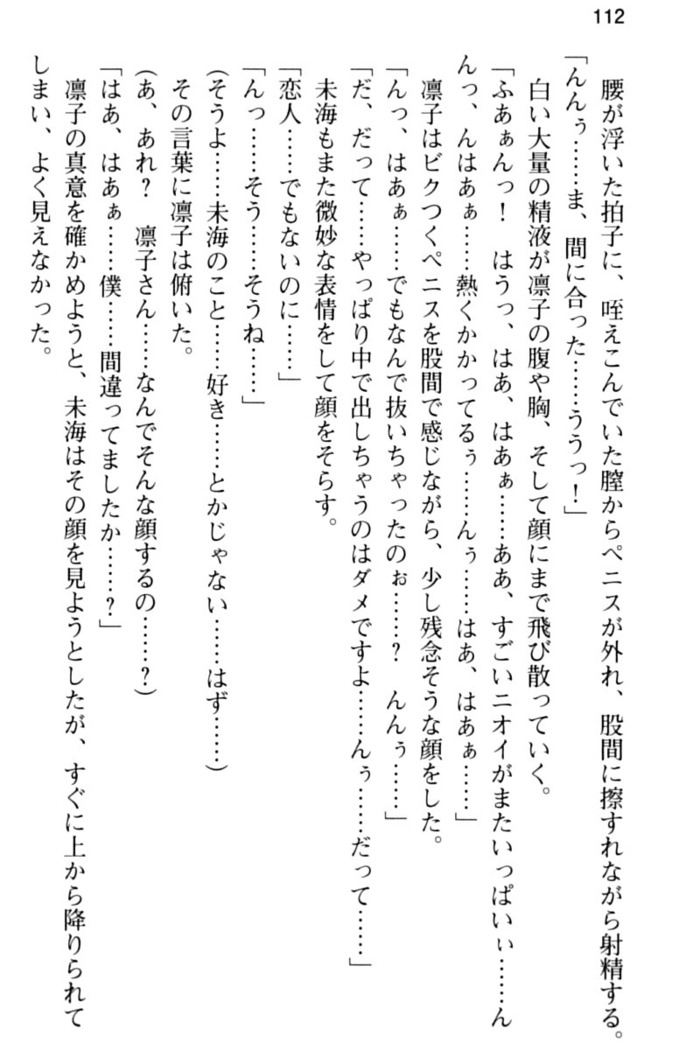 112
腰が浮いた拍子に、咥えこんでいた膣からペニスが外れ、股間に擦すれながら射精する。
「んんぅ……ま、間に合った……ううっ！」
白い大量の精液が凛子の腹や胸、そして顔にまで飛び散っていく。
「ふあぁんっ！　はうっ、はあ、はあぁ……ああ、すごいニオイがまたいっぱいぃ……ん
んっ、んはあぁ……熱くかかってるぅ……んぅ……はあ、はあぁ……」
凛子はビクつくペニスを股間で感じながら、少し残念そうな顔をした。
「んっ、はあぁ……でもなんで抜いちゃったのぉ……？　んんぅ……」
「だ、だって……やっぱり中で出しちゃうのはダメですよ……んぅ……だって……」
未海もまた微妙な表情をして顔をそらす。
「恋人……でもないのに……」
「んっ……そう……そうね……」
（そうよ……未海のこと……好き……とかじゃない……はず……）
その言葉に凛子は俯いた。
（あ、あれ？　凛子さん……なんでそんな顔するの……？）
「はあ、はあぁ……僕……間違ってましたか……？」
凛子の真意を確かめようと、未海はその顔を見ようとしたが、すぐに上から降りられて
しまい、よく見えなかった。